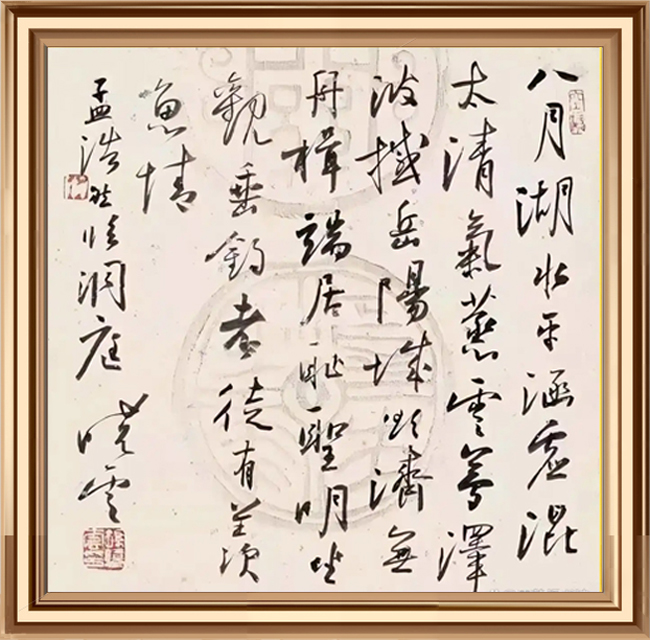 八月湖水平涵虚混
太清氣蒸雲夢澤
波撼岳陽城欲濟無
舟楫端居耻聖明坐
觀垂釣者徒有羡
魚情
孟浩然臨洞庭 曉雲